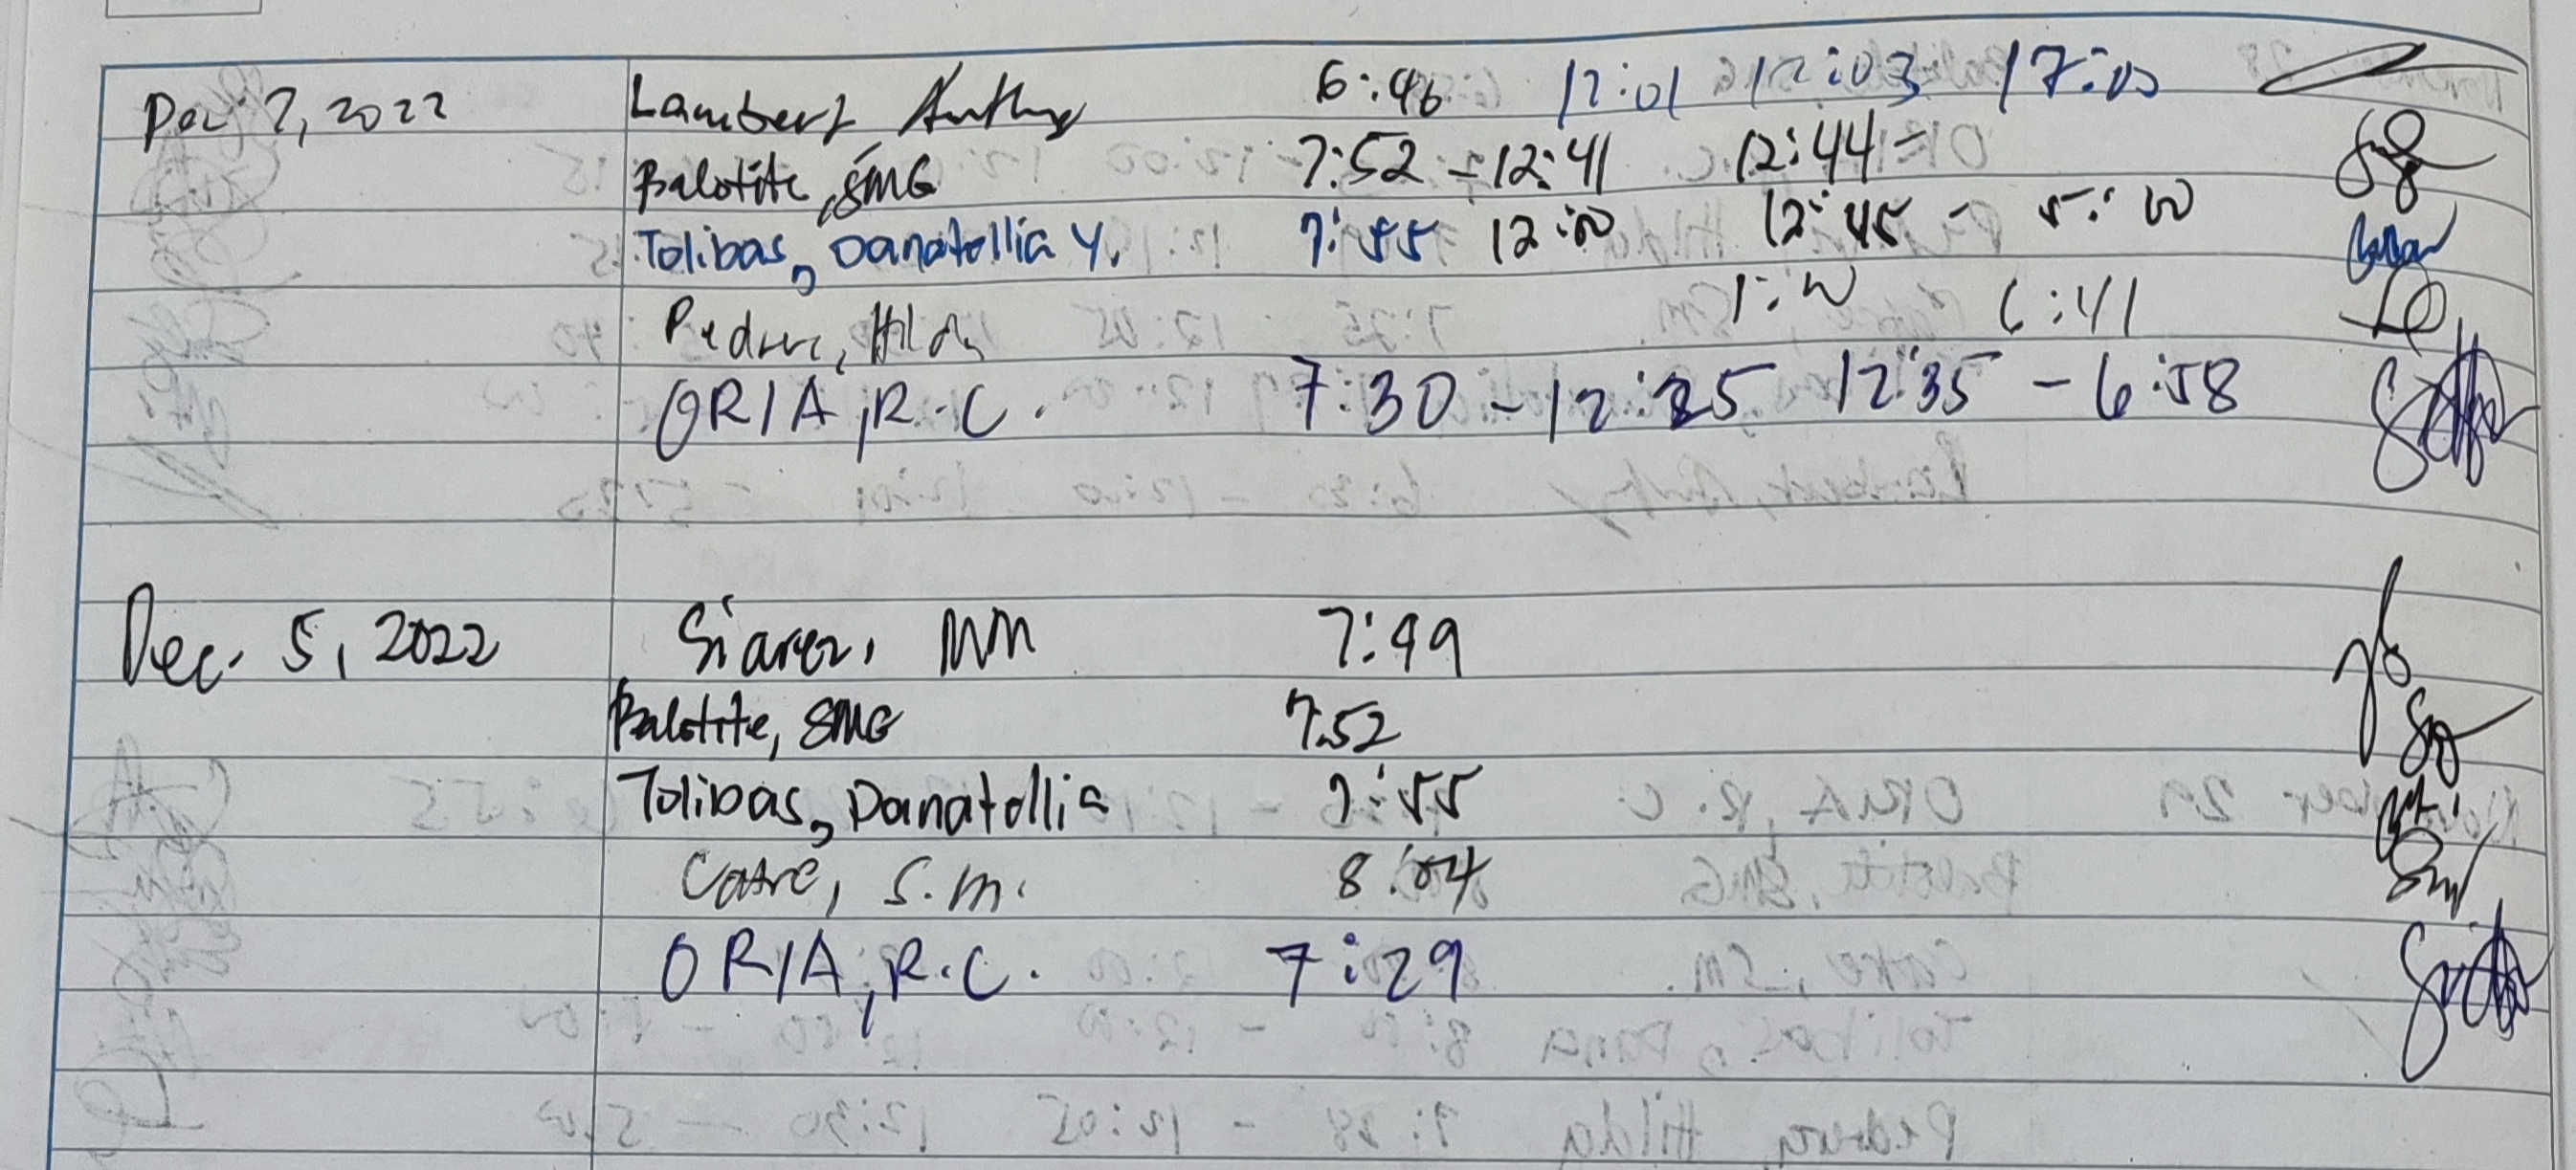 Dec 2, 2022 Lambert, Anthony 6:46 12:01 12:03 17:00
Balotite, SMG 7:52 - 12:41 12:44 -
Tolibas, Danatollia Y. 7:55 12:00 12:45 - 5:00
Pedrera, Hilda 1:00 6:41
ORIA, R.C. 7:30 - 12:25 12:35 - 6:58
Dec. 5, 2022 Siarez, MM 7:49
Balotite, SMG 7:52
Tolibas, Danatollia 7:55
Catre, S.M. 8:04
ORIA, R.C. 7:29